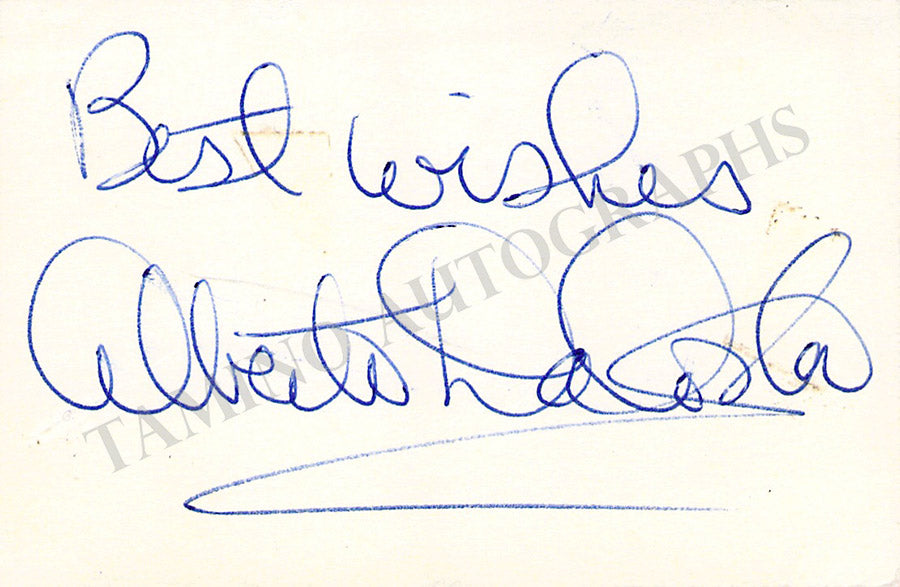 Best wishes
Alberto Da Costa
TAMINO AUTOGRAPHS